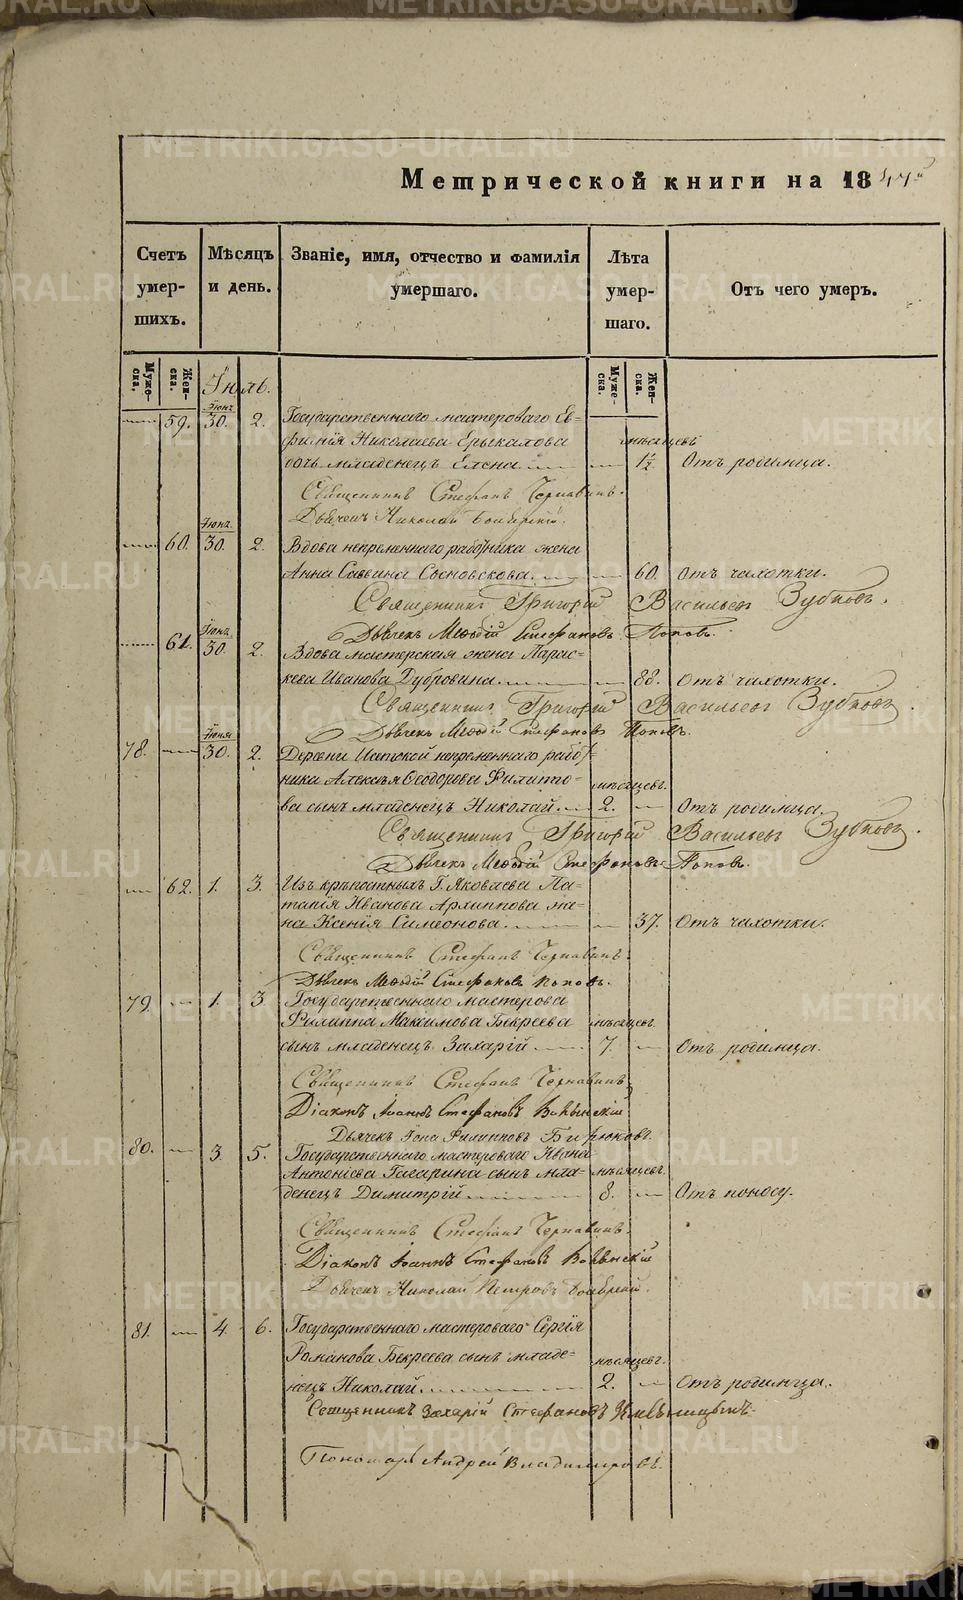 Метрической книги на 1847й
Счетъ умер-шихъ.
Мѣсяцъ и день.
Званіе, имя, отчество и фамилія умершаго.
Лѣта умер-шаго.
Отъ чего умеръ.
Муже-ска.
Жен-ска.
Муже-ска.
Жен-ска.
Іюль.
Іюня
59. 30. 2. Государственнаго мастероваго Ев-
фимія Николаева Ерыкалова мѣсяцевъ
дочь младенецъ Елена 1½ Отъ родимца.
Священникъ Стефанъ Чернавинъ.
Дьячекъ Николай
Іюня
60. 30. 2. Вдова непременнаго работника жена
Анна Саввина Сосновскова. 60. Отъ чахотки.
Священникъ Григорій Васильевъ Зубковъ.
Дьячекъ Меѳодій Стефановъ Поповъ.
Іюня
61. 30. 2. Вдова мастерская жена Парас-
кева Иванова Дубровина. 88. Отъ чахотки.
Священникъ Григорій Васильевъ Зубковъ.
Дьячекъ Меѳодій Стефановъ Поповъ.
Іюня
78. 30. 2. Деревни непременнаго рабо-
ника Алексѣя Ѳеодорова Филипо- мѣсяцевъ.
ва сынъ младенецъ Николай. 2. Отъ родимца.
Священникъ Григорій Васильевъ Зубковъ.
Дьячекъ Меѳодій Стефановъ Поповъ.
62. 1. 3. Изъ крѣпостныхъ Г. Яковлева По-
тапія Иванова Архиппова же-
на Ксенія Симеонова. 37. Отъ чахотки.
Священникъ Стефанъ Чернавинъ.
Дьячекъ Меѳодій Стефановъ Поповъ.
79. 1. 3. Государственнаго мастерова
Филиппа Максимова Бекреева мѣсяцевъ
сынъ младенецъ Захарій 7. Отъ родимца.
Священникъ Стефанъ Чернавинъ.
Діаконъ Іоаннъ Стефановъ
Дьячекъ Іона Филиповъ Бирюковъ.
80. 3. 5. Государственнаго мастероваго Ивана
Антоніева Гагарина сынъ мла- мѣсяцевъ.
денецъ Димитрій 8. Отъ поносу.
Священникъ Стефанъ Чернавинъ.
Діаконъ Іоаннъ Стефановъ
Дьячекъ Николай Петровъ
81. 4. 6. Государственнаго мастероваго Сергія
Романова Бекреева сынъ младе- мѣсяцевъ.
нецъ Николай. 2. Отъ родимца.
Священникъ Захарій Стефановъ
Пономарь Андрей Владимировъ.
METRIKI.GASO-URAL.RU